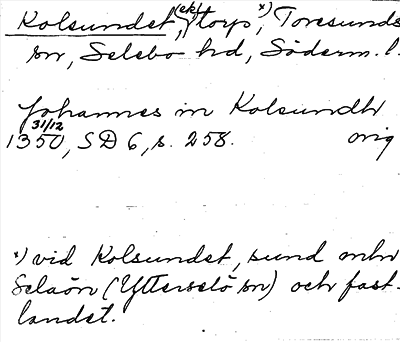 Kolsundet, (ek) torp, x) Toresunds
sn, Selebo hd, Söderm. l.
Johannes in Kolsundh
1350 31/12, SD 6, s. 258. orig
x) vid Kolsundet, sund mln
Selaön (Ytterselö sn) och fast-
landet.